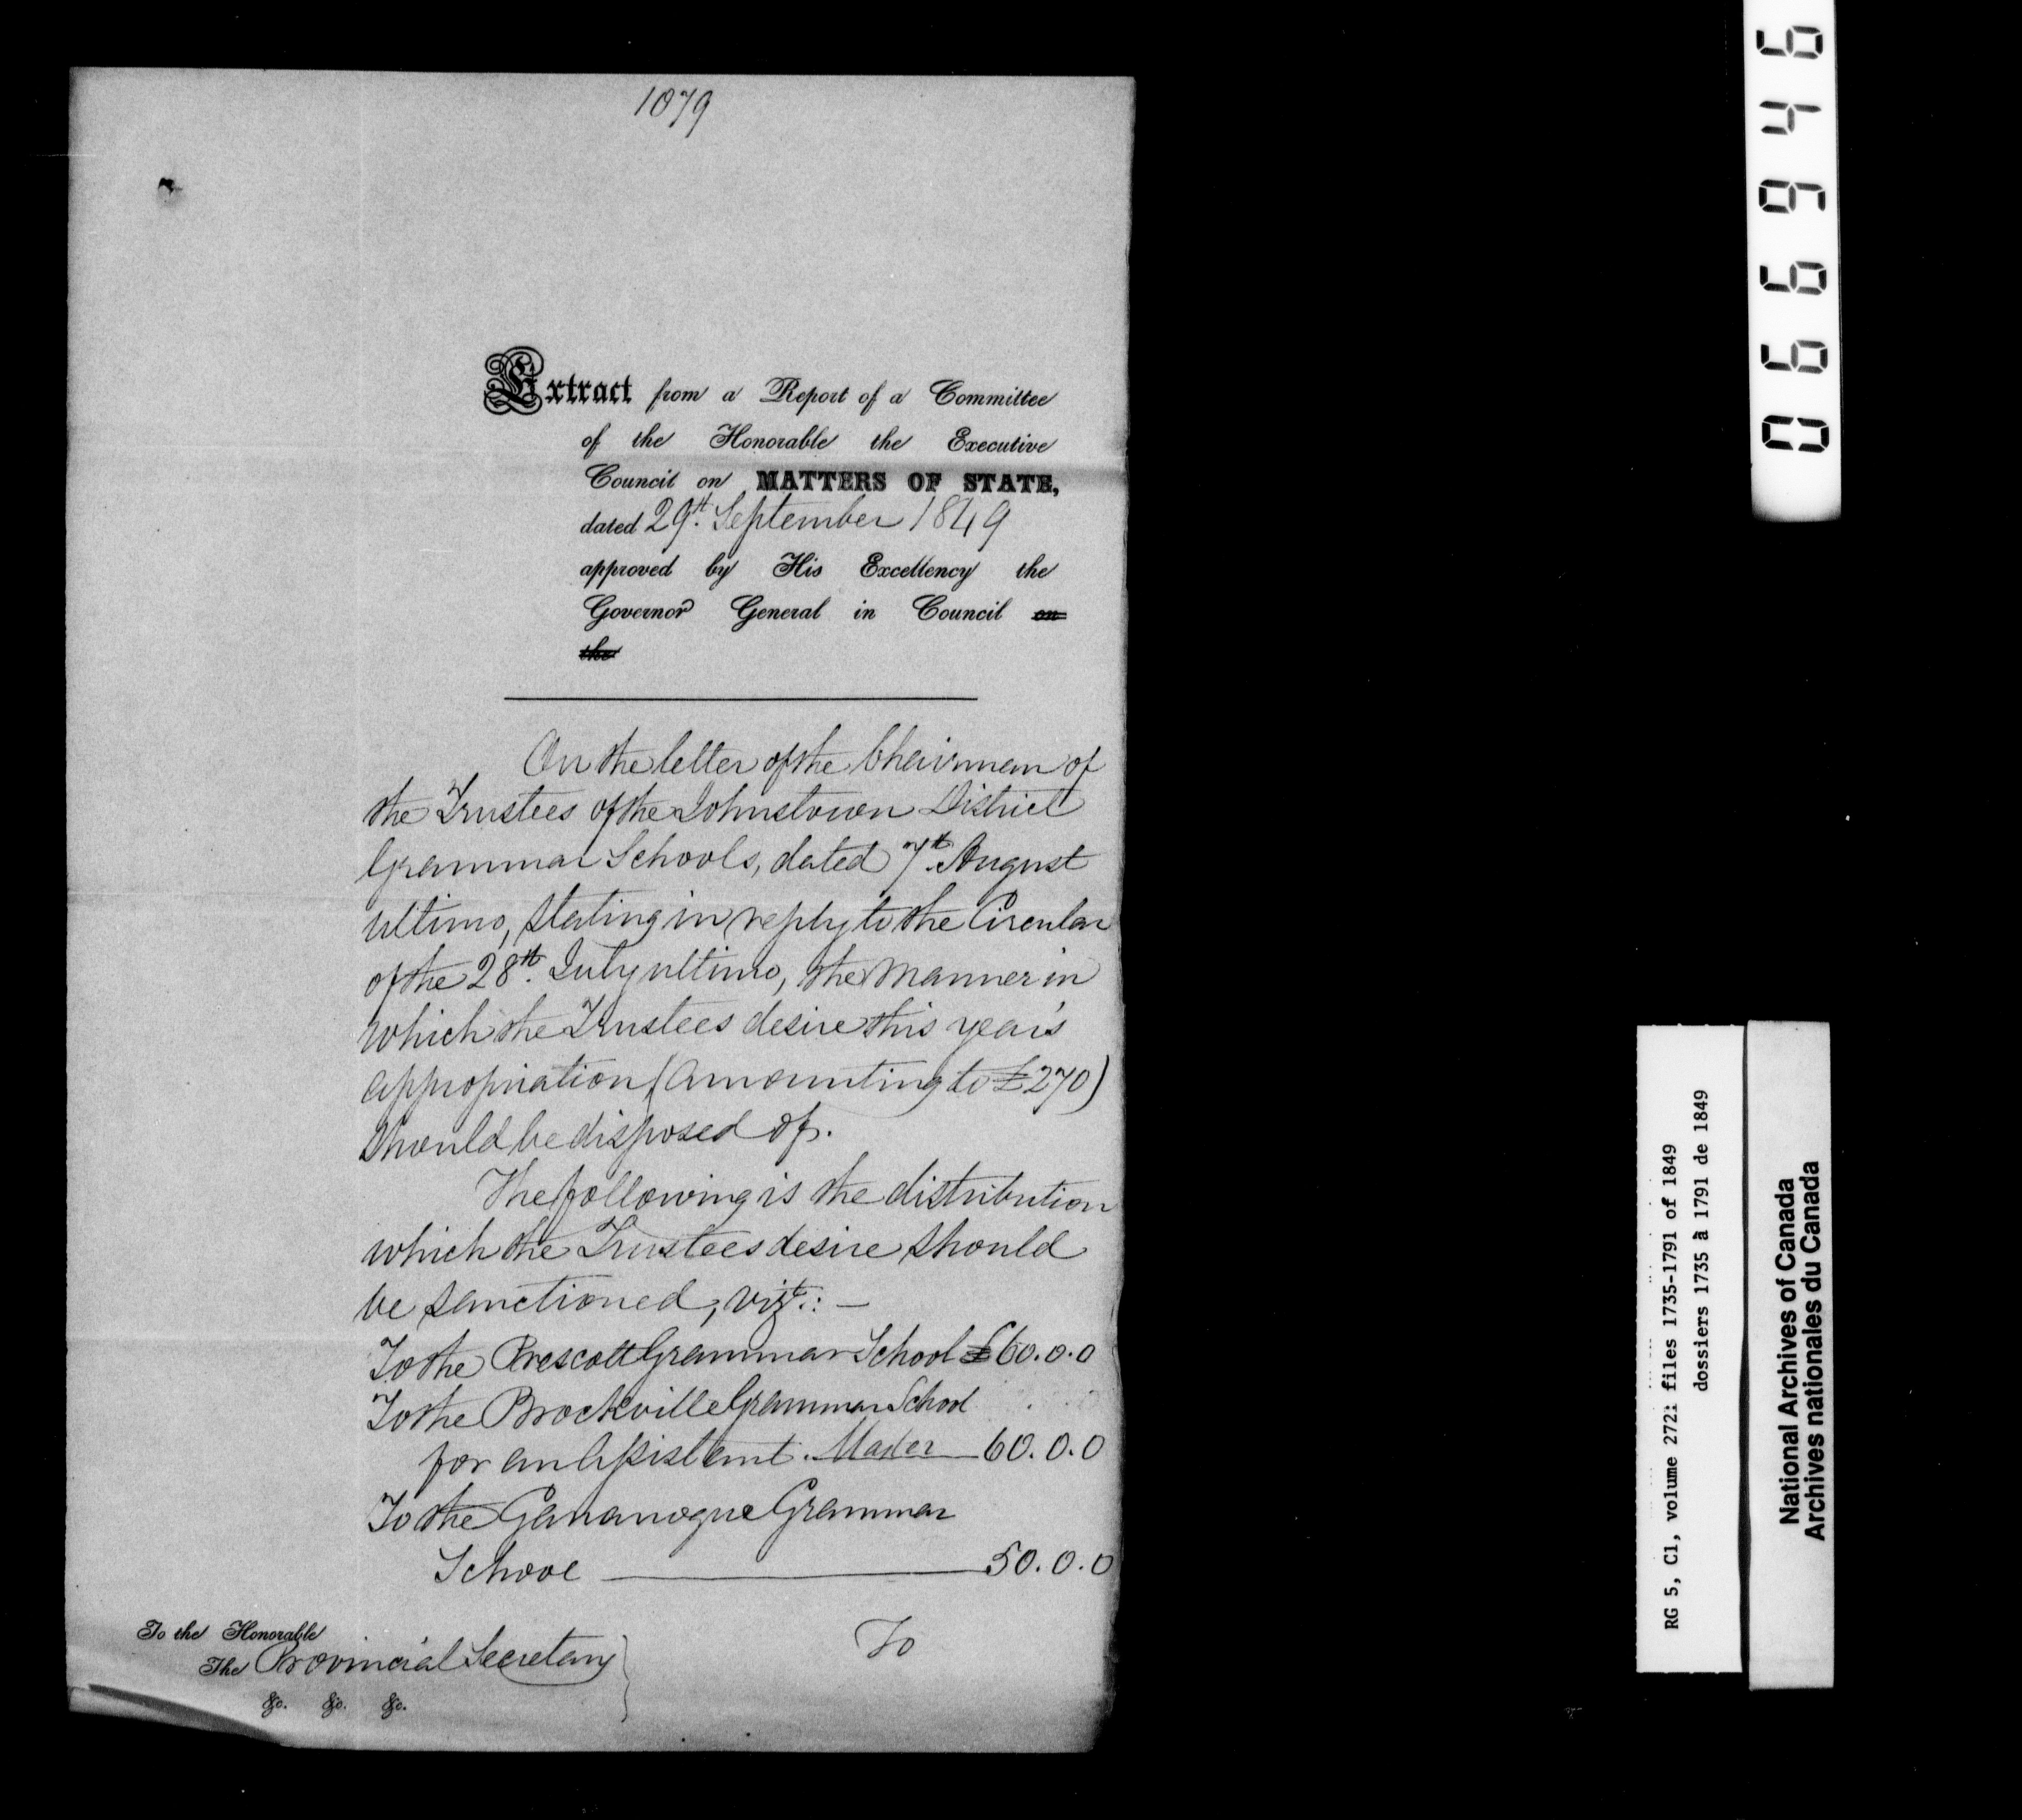 1079
Extract from a Report of a Committee
of the Honorable the Executive
Council on MATTERS OF STATE,
dated 29th. September 1849
approved by His Excellency the
Governor General in Council on
the
On the letter of the Chairman of
the Trustees of the Johnstown District
Grammar Schools, dated 7th. August
ultimo, stating in reply to the Circular
of the 28th. July ultimo, the manner in
which the Trustees desire this year's
appropriation (amounting to £270)
should be disposed of.
The following is the distribution
which the Trustees desire should
be sanctioned, vizt.: —
To the Prescott Grammar School £60.0.0
To the Brockville Grammar School
for an Assistant Master — 60.0.0
To the Gananoque Grammar
School — 50.0.0
To the Honorable
The Provincial Secretary
&c. &c. &c.
To
066946
RG 5, C1, volume 272: files 1735-1791 of 1849
dossiers 1735 à 1791 de 1849
National Archives of Canada
Archives nationales du Canada